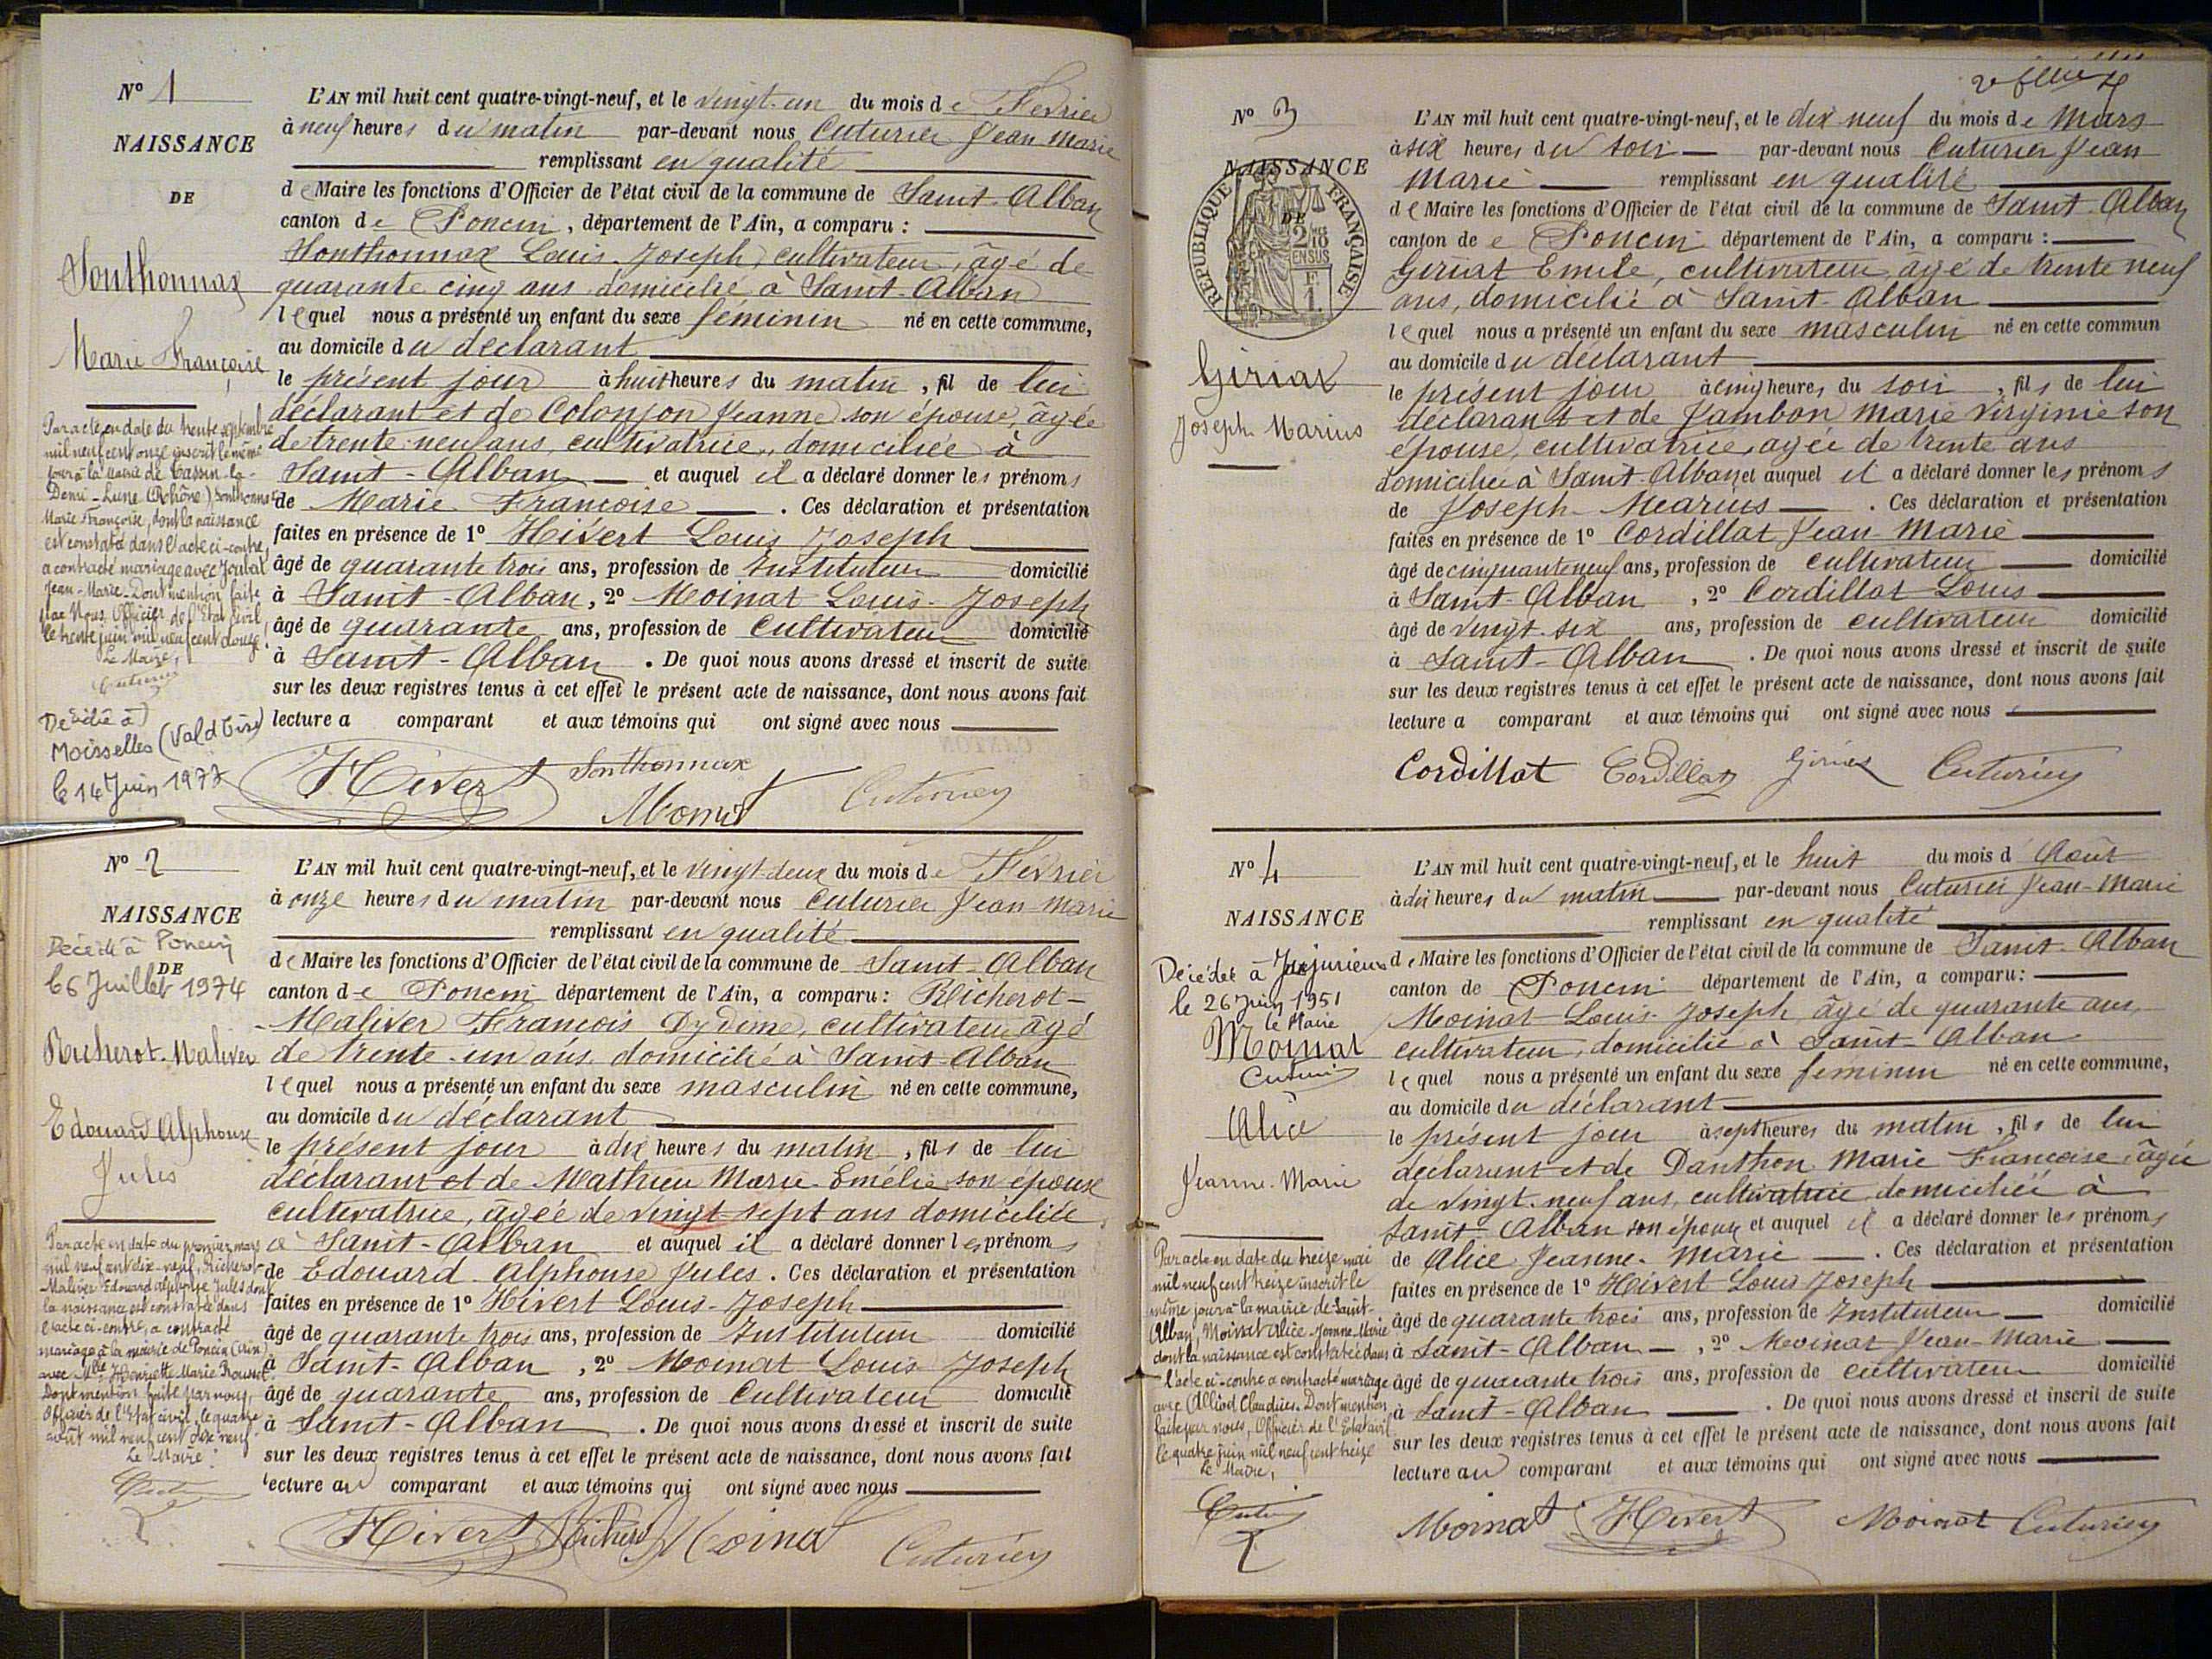 N° 1
NAISSANCE
DE
Sonthonnax
Marie Françoise
Par acte en date du trente septembre
mil neuf cent onze inscrit le même
jour à la mairie de Tassin-la-
Demi-Lune (Rhône) Sonthonnax
Marie Françoise, dont la naissance
est constatée dans l'acte ci-contre,
a contracté mariage avec
Jean-Marie. Dont mention faite
par Nous, Officier de l'Etat Civil,
le trente juin mil neuf cent douze.
Le Maire,
Cuturier
Décédée à
Moisselles (Val d'Oise)
le 14 Juin 1977
L'AN mil huit cent quatre-vingt-neuf, et le vingt-un du mois de Fevrier
à neuf heures du matin par-devant nous Cuturier Jean Marie
remplissant en qualité
de Maire les fonctions d'Officier de l'état civil de la commune de Saint-Alban
canton de Poncin, département de l'Ain, a comparu :
Sonthonnax Louis-Joseph, cultivateur, âgé de
quarante cinq ans domicilié à Saint-Alban
lequel nous a présenté un enfant du sexe féminin né en cette commune,
au domicile du déclarant
le présent jour à huit heures du matin, fil de lui
déclarant et de Colonjon Jeanne son épouse, âgée
de trente-neuf ans, cultivatrice, domiciliée à
Saint-Alban et auquel il a déclaré donner les prénoms
de Marie Françoise. Ces déclaration et présentation
faites en présence de 1° Hivert Louis Joseph
âgé de quarante trois ans, profession de Instituteur domicilié
à Saint-Alban, 2° Moinat Louis-Joseph
âgé de quarante ans, profession de cultivateur domicilié
à Saint-Alban. De quoi nous avons dressé et inscrit de suite
sur les deux registres tenus à cet effet le présent acte de naissance, dont nous avons fait
lecture a comparant et aux témoins qui ont signé avec nous
Hivert Sonthonnax
Moinat Cuturier
N° 2
NAISSANCE
Décédé à Poncin
DE
le 6 Juillet 1974
Richerot-Maliver
Edouard Alphonse
Jules
Par acte en date du premier mars
mil neuf cent dix-neuf, Richerot-
Maliver Edouard Alphonse Jules dont
la naissance est constatée dans
l'acte ci-contre, a contracté
mariage à la mairie de Poncin (Ain)
avec Mlle Henriette Marie Rousset.
Dont mention faite par nous,
Officier de l'Etat civil, le quatre
août mil neuf cent dix neuf.
Le Maire
L'AN mil huit cent quatre-vingt-neuf, et le vingt-deux du mois de Fevrier
à onze heures du matin par-devant nous Cuturier Jean-Marie
remplissant en qualité
de Maire les fonctions d'Officier de l'état civil de la commune de Saint-Alban
canton de Poncin département de l'Ain, a comparu : Richerot-
Maliver François Dydime, cultivateur âgé
de trente-un ans domicilié à Saint-Alban
lequel nous a présenté un enfant du sexe masculin né en cette commune,
au domicile du déclarant
le présent jour à dix heures du matin, fils de lui
déclarant et de Mathieu Marie-Emélie son épouse
cultivatrice, âgée de vingt-sept ans domiciliée
à Saint-Alban et auquel il a déclaré donner les prénoms
de Edouard Alphonse Jules. Ces déclaration et présentation
faites en présence de 1° Hivert Louis-Joseph
âgé de quarante trois ans, profession de Instituteur domicilié
à Saint-Alban, 2° Moinat Louis Joseph
âgé de quarante ans, profession de Cultivateur domicilié
à Saint-Alban. De quoi nous avons dressé et inscrit de suite
sur les deux registres tenus à cet effet le présent acte de naissance, dont nous avons fait
lecture au comparant et aux témoins qui ont signé avec nous
Hivert Richerot Moinat Cuturier
N° 3
NAISSANCE
DE
REPUBLIQUE FRANÇAISE
Giriat
Joseph Marius
L'AN mil huit cent quatre-vingt-neuf, et le dix-neuf du mois de Mars
à six heures du soir par-devant nous Cuturier Jean
Marie remplissant en qualité
de Maire les fonctions d'Officier de l'état civil de la commune de Saint-Alban
canton de Poncin département de l'Ain, a comparu :
Giriat Emile, cultivateur âgé de trente neuf
ans, domicilié à Saint-Alban
lequel nous a présenté un enfant du sexe masculin né en cette commun
au domicile du déclarant
le présent jour à cinq heures du soir, fils de lui
déclarant et de Jambon Marie Virginie son
épouse, cultivatrice, agée de trente ans
domiciliée à Saint-Alban et auquel il a déclaré donner les prénoms
de Joseph-Marius. Ces déclaration et présentation
faites en présence de 1° Cordillat Jean-Marie
âgé de cinquante neuf ans, profession de cultivateur domicilié
à Saint-Alban, 2° Cordillat Louis
âgé de vingt-six ans, profession de cultivateur domicilié
à Saint-Alban. De quoi nous avons dressé et inscrit de suite
sur les deux registres tenus à cet effet le présent acte de naissance, dont nous avons fait
lecture a comparant et aux témoins qui ont signé avec nous
Cordillat Cordillat Giriat Cuturier
N° 4
NAISSANCE
Décédée à Jujurieux
le 26 Juin 1951
le Maire
Moinat
Cuturier
Alice
Jeanne-Marie
Par acte en date du treize mai
mil neuf cent treize inscrit le
même jour à la mairie de Saint-
Alban, Moinat Alice Jeanne-Marie
dont la naissance est constatée dans
l'acte ci-contre a contracté mariage
avec Alliod Claudius. Dont mention
faite par nous, Officier de l'Etat civil
le quatre juin mil neuf cent treize
Le Maire,
L'AN mil huit cent quatre-vingt-neuf, et le huit du mois d'Août
à dix heures du matin par-devant nous Cuturier Jean-Marie
remplissant en qualité
de Maire les fonctions d'Officier de l'état civil de la commune de Saint-Alban
canton de Poncin département de l'Ain, a comparu :
Moinat Louis-Joseph, âgé de quarante ans,
cultivateur, domicilié à Saint-Alban
lequel nous a présenté un enfant du sexe feminin né en cette commune,
au domicile du déclarant
le présent jour à sept heures du matin, fils de lui
déclarant et de Danthon Marie Françoise, âgée
de vingt-neuf ans, cultivatrice domiciliée à
Saint-Alban son épouse et auquel il a déclaré donner les prénoms
de Alice Jeanne-Marie. Ces déclaration et présentation
faites en présence de 1° Hivert Louis Joseph
âgé de quarante trois ans, profession de Instituteur domicilié
à Saint-Alban, 2° Moinat Jean-Marie
âgé de quarante trois ans, profession de cultivateur domicilié
à Saint-Alban. De quoi nous avons dressé et inscrit de suite
sur les deux registres tenus à cet effet le présent acte de naissance, dont nous avons fait
lecture au comparant et aux témoins qui ont signé avec nous
Moinat Hivert Moinat Cuturier